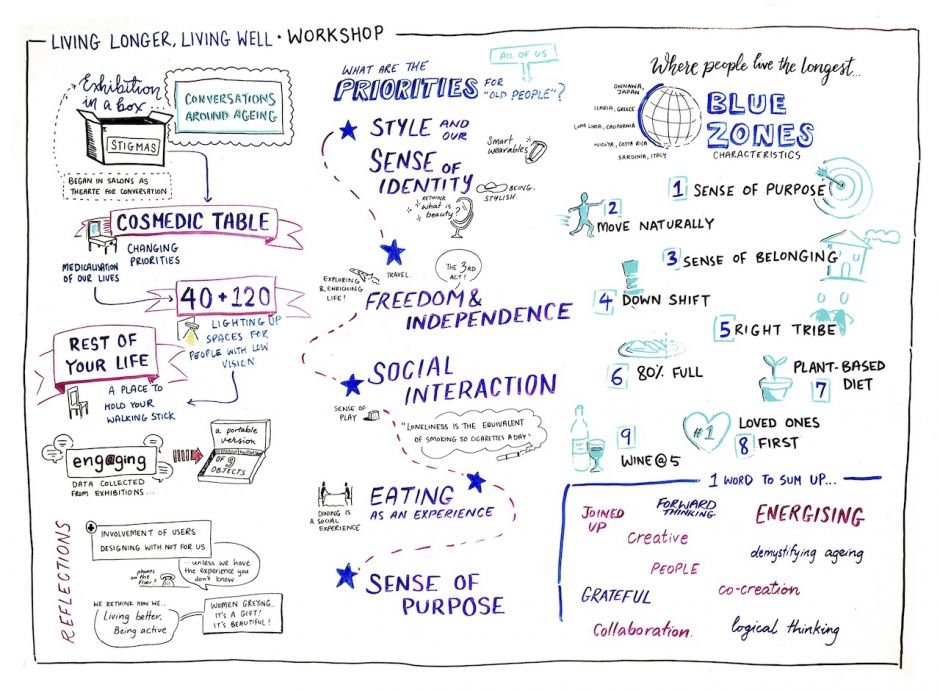 LIVING LONGER, LIVING WELL • WORKSHOP
Exhibition
in a box
STIGMAS
CONVERSATIONS
AROUND AGEING
BEGAN IN SALONS AS
THEARTE FOR CONVERSATION
COSMEDIC TABLE
CHANGING
PRIORITIES
MEDICALISATION
OF OUR LIVES
40 + 120
LIGHTING UP
SPACES FOR
PEOPLE WITH LOW
VISION
REST OF
YOUR LIFE
A PLACE TO
HOLD YOUR
WALKING STICK
eng@ging
DATA COLLECTED
FROM EXHIBITIONS...
a portable
version
OF 9
OBJECTS
REFLECTIONS
INVOLVEMENT OF USERS
DESIGNING WITH NOT FOR US
...unless we have
the experience you
don't know
phones
on the
floor?
WE RETHINK HOW WE...
Living better,
Being active
WOMEN GREYING...
IT'S A GIFT!
IT'S BEAUTIFUL!
WHAT ARE THE
PRIORITIES FOR
"OLD PEOPLE"?
ALL OF US
STYLE AND
OUR
SENSE OF
IDENTITY
Smart
wearables
BEING
STYLISH.
RETHINK
what is
beauty?
TRAVEL.
EXPLORING
& ENRICHING
LIFE!
THE 3RD
ACT!
FREEDOM &
INDEPENDENCE
SOCIAL
INTERACTION
SENSE OF
PLAY
"LONELINESS IS THE EQUIVALENT
OF SMOKING 50 CIGARETTES A DAY"
EATING
AS AN EXPERIENCE
DINING IS
A SOCIAL
EXPERIENCE
SENSE OF
PURPOSE
Where people live the longest...
OKINAWA,
JAPAN
ICARIA, GREECE
LOMA LINDA, CALIFORNIA
NICOYA, COSTA RICA
SARDINIA, ITALY
BLUE
ZONES
CHARACTERISTICS
1 SENSE OF PURPOSE
2
MOVE NATURALLY
3 SENSE OF BELONGING
4 DOWN SHIFT
5 RIGHT TRIBE
6 80% FULL
PLANT-BASED
7 DIET
#1
LOVED ONES
8 FIRST
9
WINE@5
1 WORD TO SUM UP...
JOINED
UP
FORWARD
THINKING
ENERGISING
Creative
demystifying ageing
PEOPLE
GRATEFUL
co-creation
Collaboration.
logical thinking